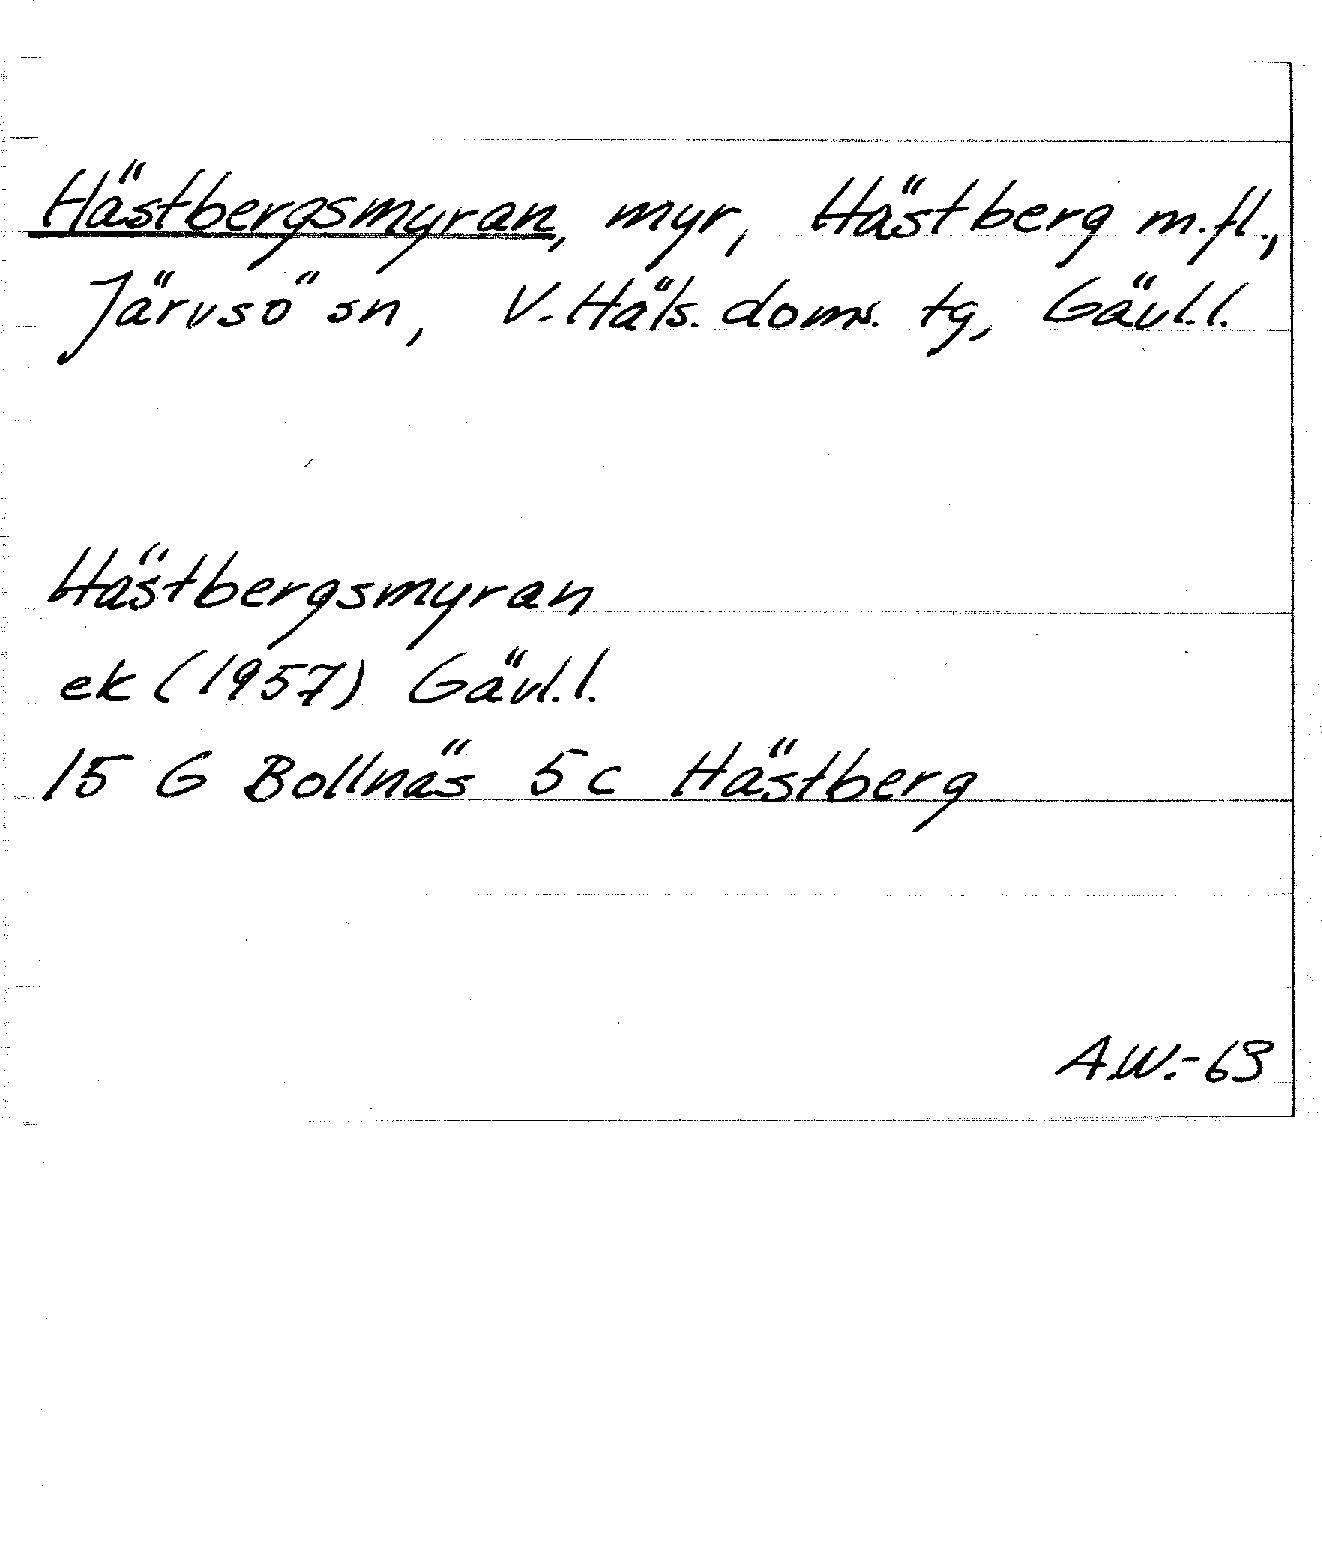 Hästbergsmyran, myr, Hästberg m.fl.,
Järvsö sn, V. Häls. doms. tg, Gävl.l.
Hästbergsmyran
ek (1957) Gävl.l.
15 G Bollnäs 5 c Hästberg
A.W.-63